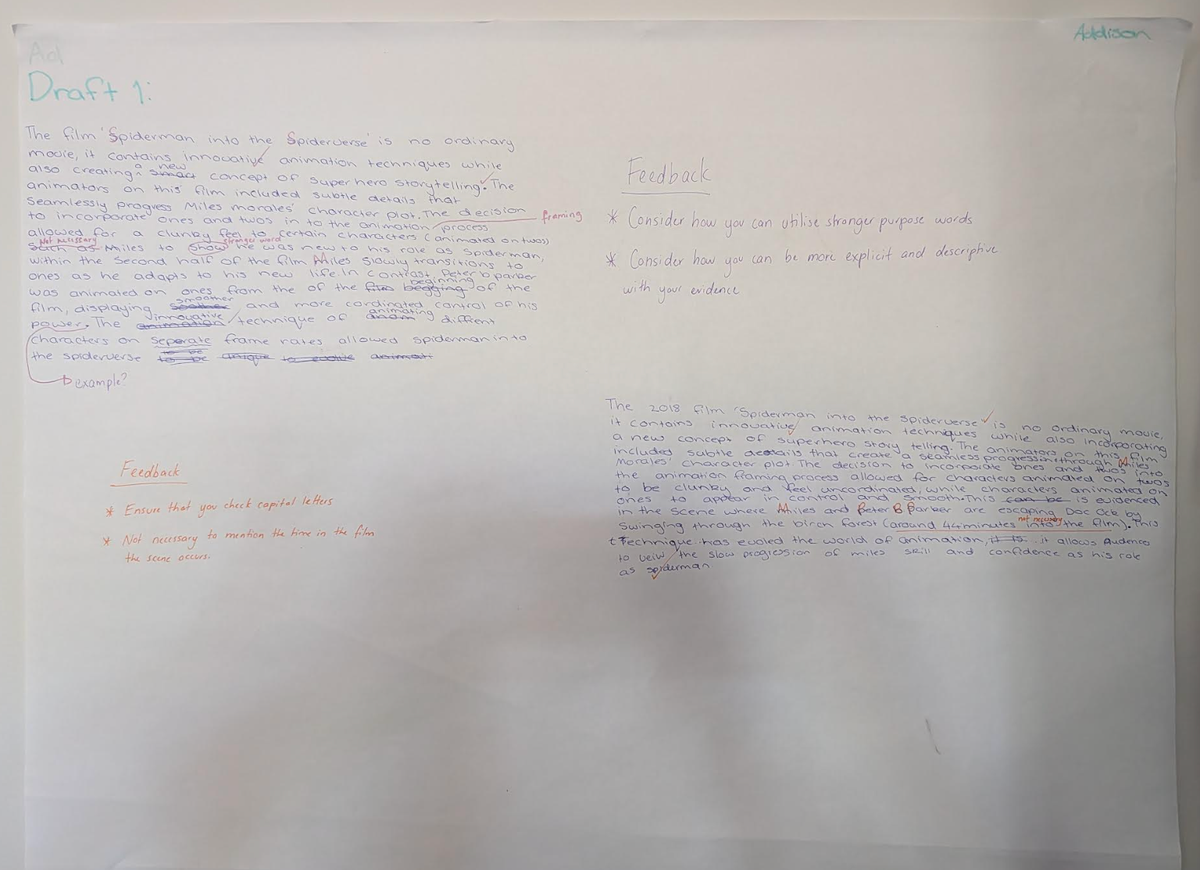 Ad
Addison
Draft 1:
The film 'Spiderman into the Spiderverse' is no ordinary
movie, it contains innovative animation techniques while
also creating a new smart concept of superhero storytelling. The
animators on this film included subtle details that
seamlessly progress Miles morales' character plot. The decision
to incorporate ones and twos in to the animation process framing
allowed for a clumby feel to certain characters (animated on twos)
Not necessary stronger word
such as Miles to show he was new to his role as Spiderman,
within the second half of the film Miles slowly transitions to
ones as he adapts to his new life. In contrast Peter b parker
was animated on ones from the of the beginning of the
film, displaying smoother and more cordinated control of his
power. The animation innovative technique of animating diffrent
characters on seperate frame rates allowed spiderman in to
the spiderverse to be unique to evolve animati
example?
Feedback
* Consider how you can utilise stronger purpose words
* Consider how you can be more explicit and descriptive
with your evidence
The 2018 film 'Spiderman into the spiderverse' is no ordinary movie,
it contains innovative animation techniques while also incorporating
a new concept of superhero story telling. The animators on this film
included subtle details that create a seamless progression through Miles
Morales' character plot. The decision to incorporate ones and twos into
the animation framing process allowed for characters animated on twos
to be clumby and feel uncordinated, while characters animated on
ones to appear in control and smooth. This can be is evidenced
in the scene where Miles and Peter B Parker are escaping Doc Ock by
not necessary
swinging through the birch forest (around 44 minutes into the film). This
technique has evoled the world of animation, it is it allows Audences
to veiw the slow progression of miles skill and confidence as his role
as spiderman
Feedback
* Ensure that you check capital letters
* Not necessary to mention the time in the film
the scene occurs.